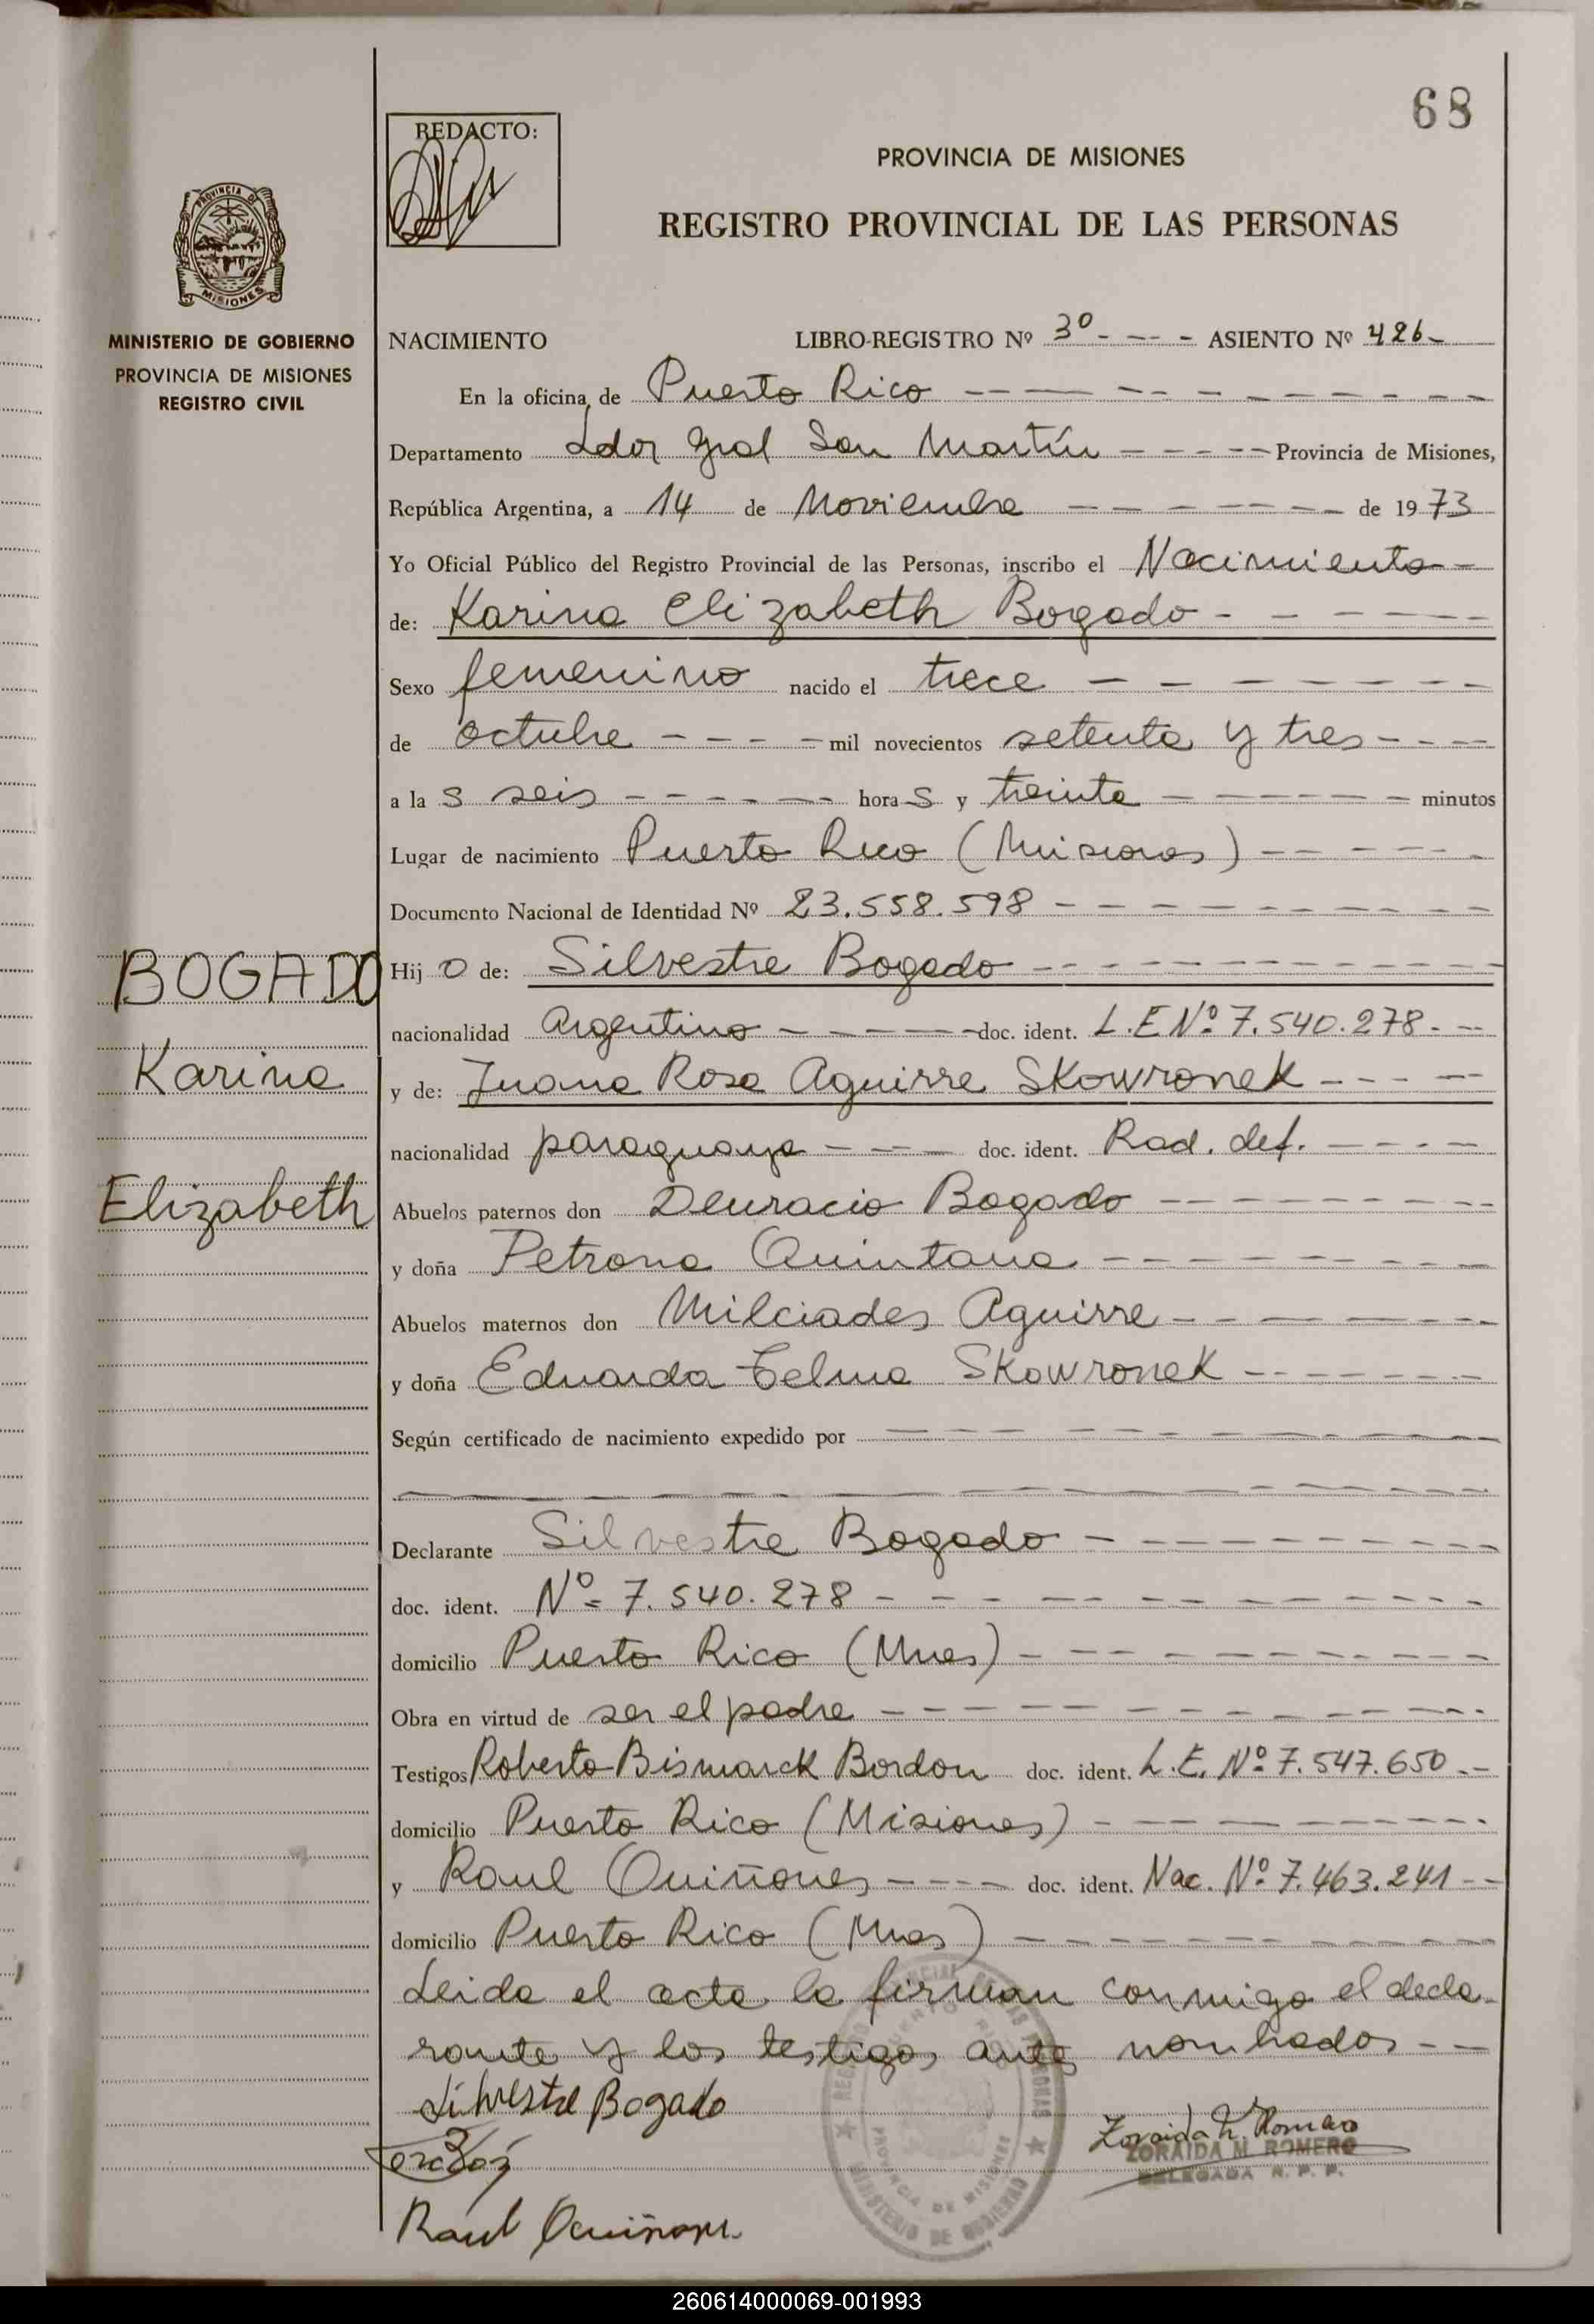 68
REDACTO:
PROVINCIA DE MISIONES
REGISTRO PROVINCIAL DE LAS PERSONAS
PROVINCIA DE
MISIONES
MINISTERIO DE GOBIERNO
PROVINCIA DE MISIONES
REGISTRO CIVIL
NACIMIENTO LIBRO-REGISTRO Nº 3º - - - - ASIENTO Nº 426 -
En la oficina de Puerto Rico
Departamento Ldor Gral San Martín - - - - - Provincia de Misiones,
República Argentina, a 14 de Noviembre - - - - - de 1973
Yo Oficial Público del Registro Provincial de las Personas, inscribo el Nacimiento -
de: Karina Elizabeth Bogado - - - - -
Sexo femenino nacido el trece - - - - -
de octubre - - - - - mil novecientos setenta y tres - - - -
a la s seis - - - - - hora s y treinta - - - - - minutos
Lugar de nacimiento Puerto Rico (Misiones) - - - - -
Documento Nacional de Identidad Nº 23.558.598 - - - - -
BOGADO
Karina
Elizabeth
Hij o de: Silvestre Bogado - - - - -
nacionalidad Argentino - - - - - doc. ident. L.E Nº 7.540.278 - - -
y de: Juana Rosa Aguirre Skowronek - - - - -
nacionalidad paraguaya - - - - doc. ident. Rad. def. - - - - -
Abuelos paternos don Bogado - - - - -
y doña Petrona Quintana - - - - -
Abuelos maternos don Milciades Aguirre - - - - -
y doña Eduarda Telma Skowronek - - - - -
Según certificado de nacimiento expedido por - - - - -
Declarante Silvestre Bogado - - - - -
doc. ident. Nº = 7.540.278 - - - - -
domicilio Puerto Rico (Mnes) - - - - -
Obra en virtud de ser el padre - - - - -
Testigos Roberto Bismarck Bordon doc. ident. L.E. Nº 7.547.650 - -
domicilio Puerto Rico (Misiones) - - - - -
y Raul Quiñones - - - - doc. ident. Nac. Nº 7.463.241 - -
domicilio Puerto Rico (Mnes) - - - - -
Leida el acta la firman conmigo el decla-
rante y los testigos antes nombrados - -
Silvestre Bogado
Zoraida M. Romero
ZORAIDA M. ROMERO
DELEGADA R. P. P.
Raul Quiñones
REGISTRO PROVINCIAL DE LAS PERSONAS
PUERTO RICO
PROVINCIA DE MISIONES
MINISTERIO DE GOBIERNO
260614000069-001993